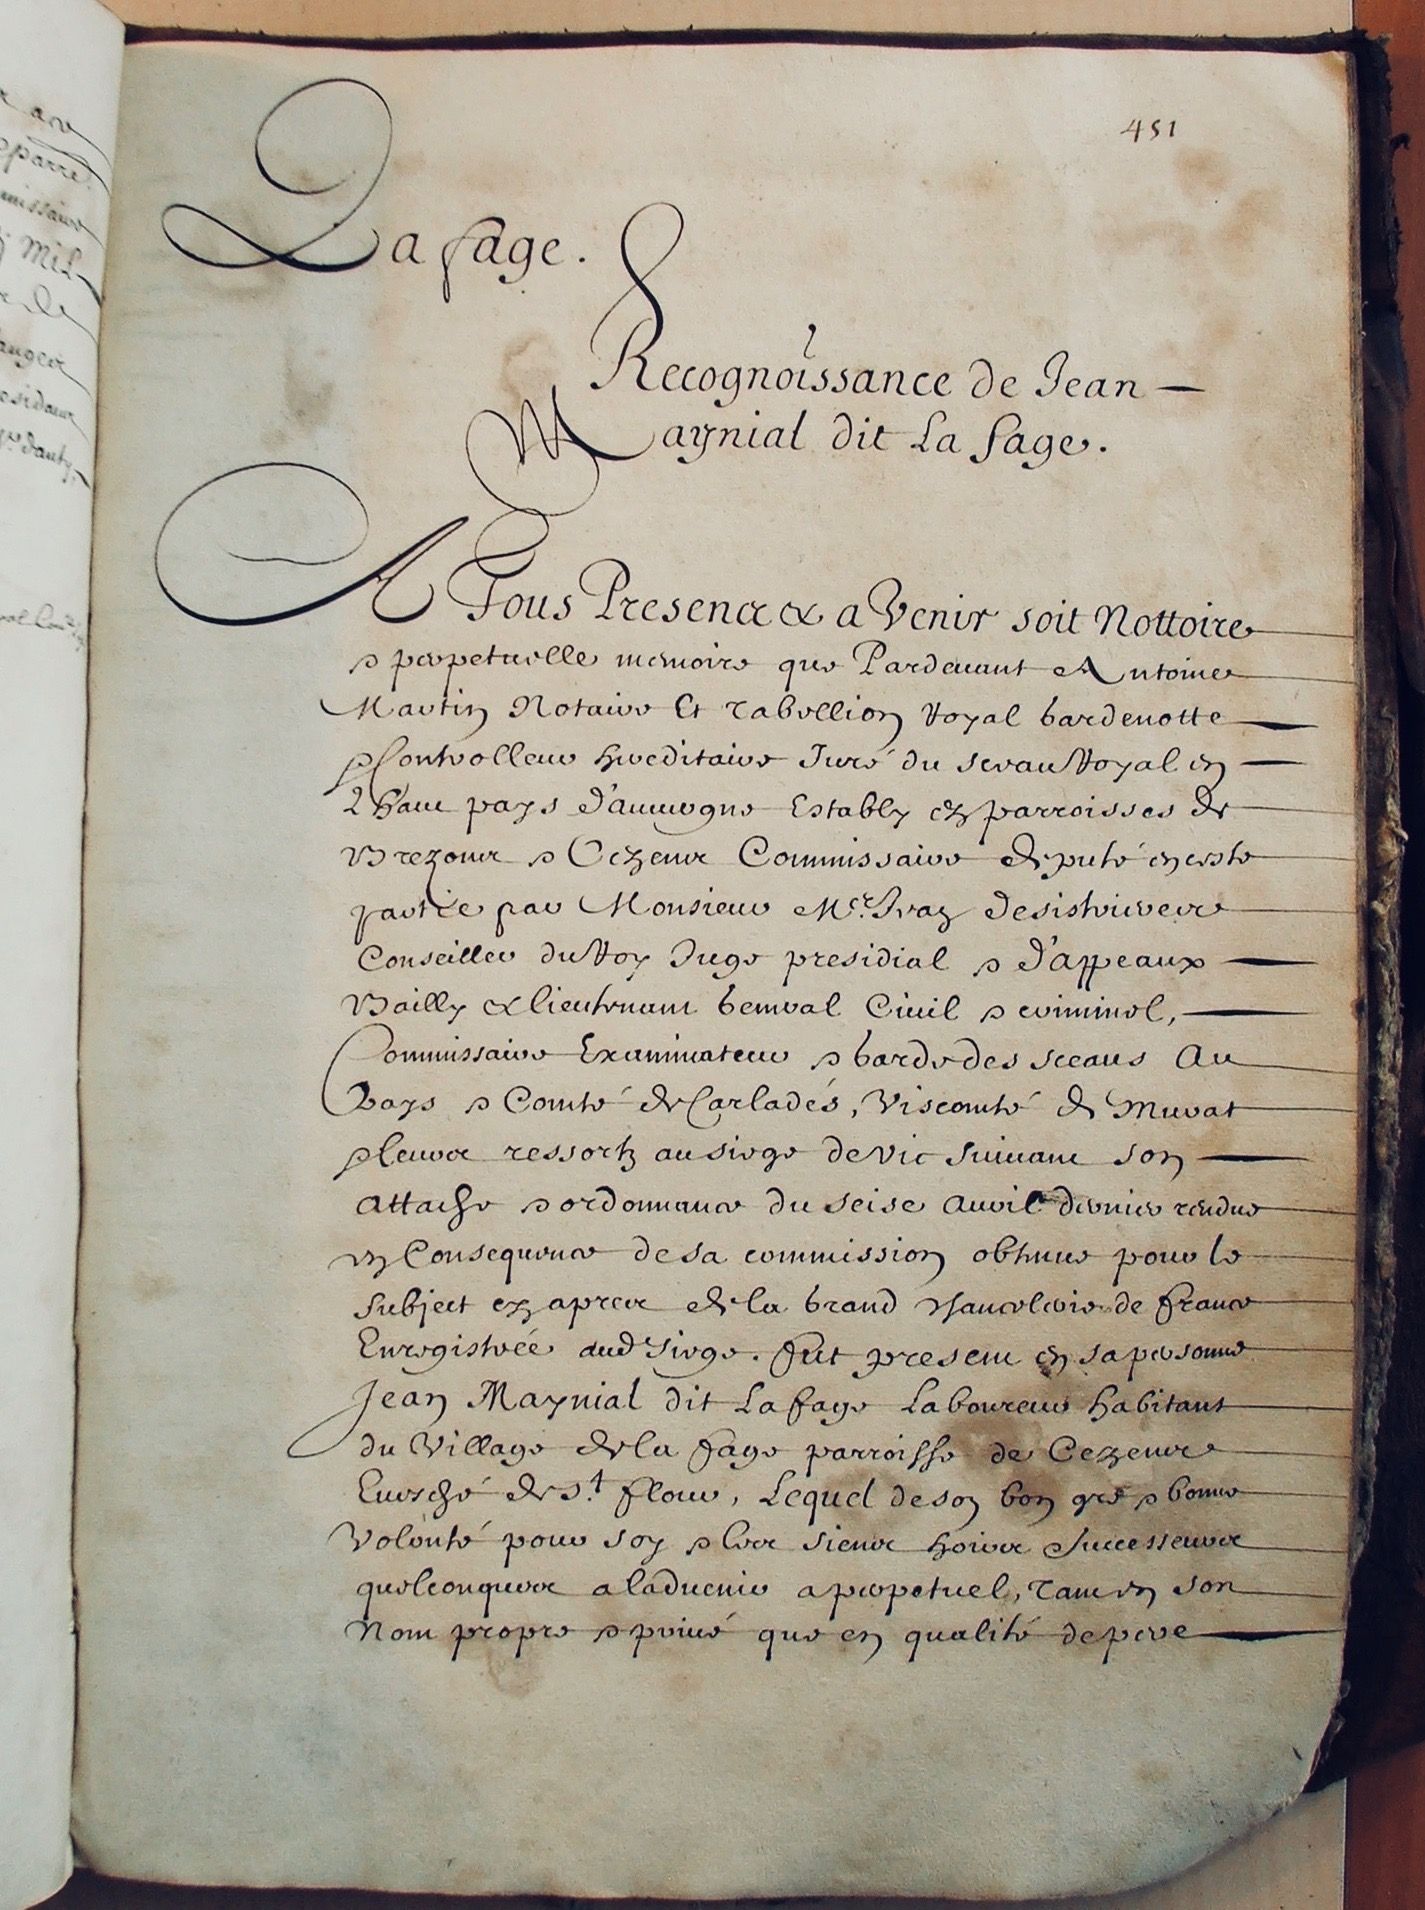 451
La fage.
Recognoissance de Jean
Maynial dit La fage.
A Tous Presens & a Venir soit Nottoire
& perpetuelle memoire que Pardevant Antoine
Martin Notaire Et Tabellion Royal Gardenotte
& Controlleur hereditaire Juré du sceau Royal en
Haut pays d'auvergne Estably ez parroisses de
Brezons & Cezens Commissaire deputé en ceste
partie par Monsieur Mer.
Conseiller du Roy Juge presidial & d'appeaux
Bailly & lieutenant General Civil & criminel,
Commissaire Examinateur & Garde des sceaus Au
Pays & Comté de Carladés, Viscomté de Murat
& leurs ressortz au siege de Vic suivant son
attache & ordonnance du seise avril dernier rendue
en Consequence de sa commission obtenue pour le
subject ez apres de la Grand Chancelerie de france
Enregistrée aud siege. fut present en sa personne
Jean Maynial dit La fage Laboureur habitant
du Village de la fage parroisse de Cezens
Evesché de St. flour, Lequel de son bon gré & bonne
Volonté pour soy & les siens hoirs successeurs
quelconques a l'advenir a perpetuel, Tant en son
Nom propre & privé que en qualité de pere